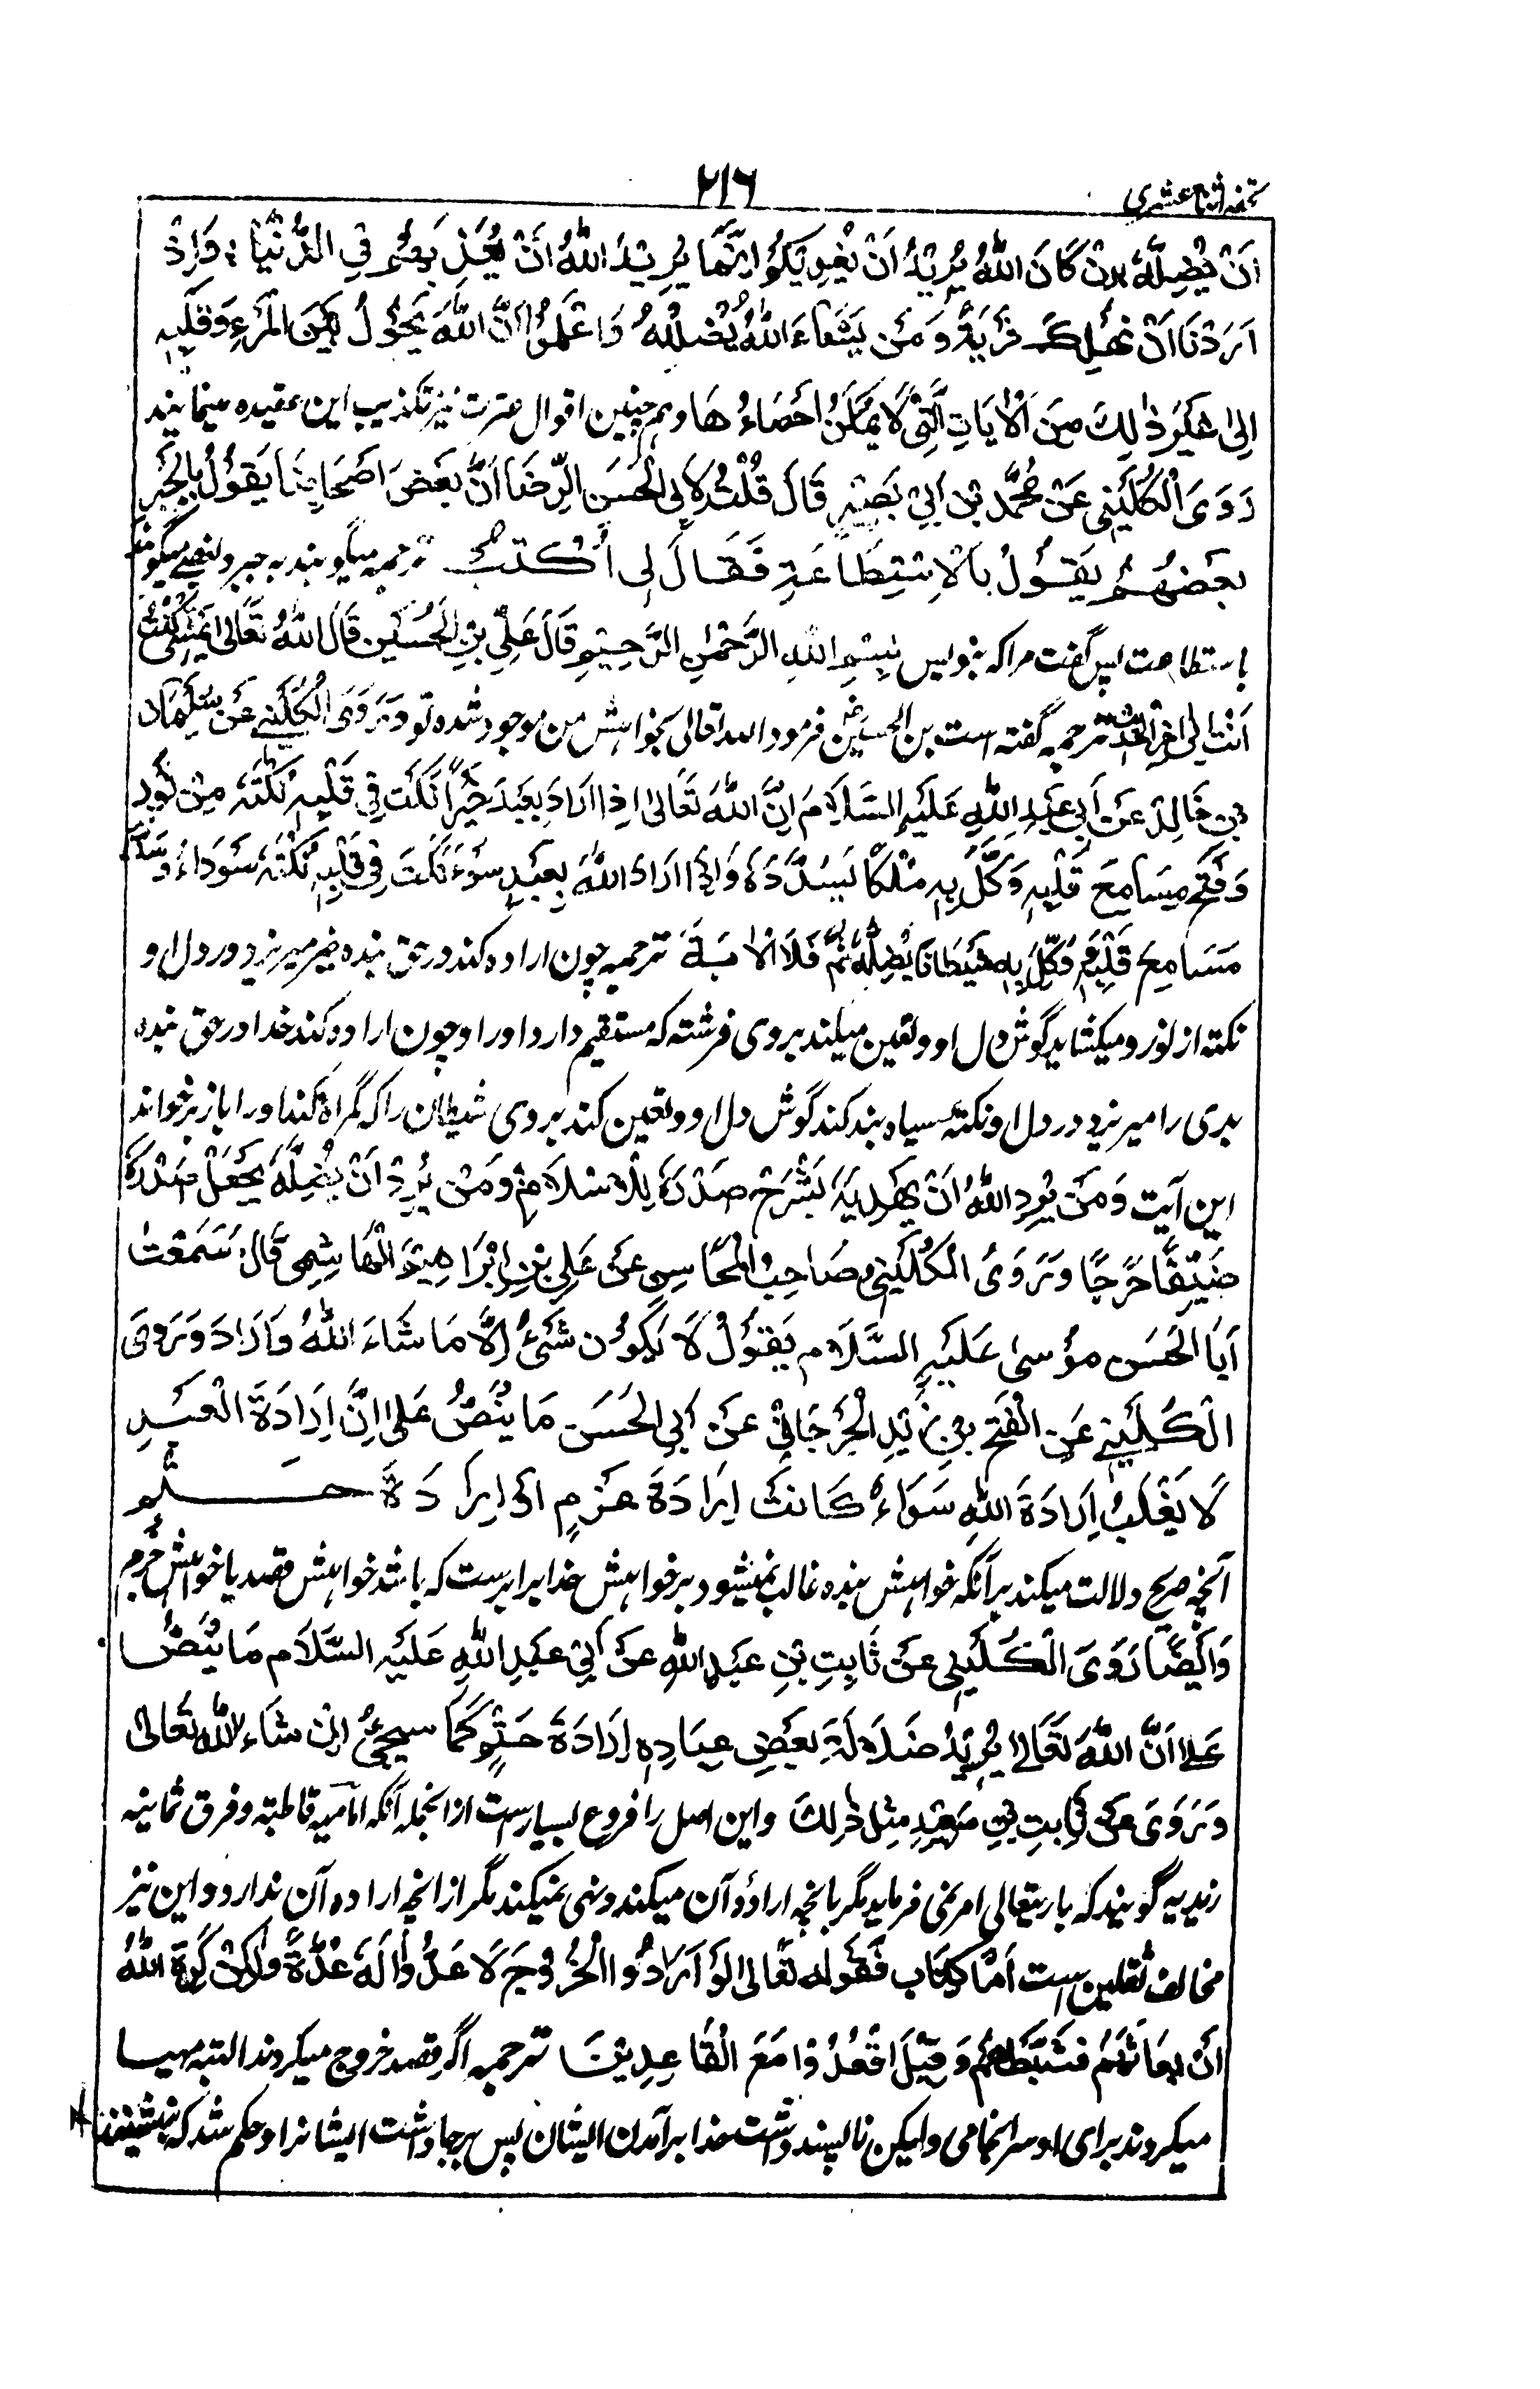 تحفه اثنا عشری
۲۱۶
اَنْ يُضِلَّهُ اِنْ كَانَ اللّٰهُ يُرِيْدُ اَنْ يُغْوِيَكُمْ اِنَّمَا يُرِيْدُ اللّٰهُ اَنْ يُعَذِّبَهُمْ فِي الدُّنْيَا وَاِذْ
اَرَدْنَا اَنْ نُهْلِكَ قَرْيَةً وَ مَنْ يَشَاءَ اللّٰهُ يُضْلِلْهُ وَاعْلَمُوْا اَنَّ اللّٰهَ يَحُوْلُ بَيْنَ الْمَرْءِ وَقَلْبِهٖ
اِلٰى غَيْرِ ذٰلِكَ مِنَ الْاٰيَاتِ الَّتِىْ لَا يُمْكِنُ اِحْصَاءُ هَا و هم چنین اقوال عترت نیز تکذیب این عقیده مینمایند
رَوَى الْكُلَيْنِى عَنْ مُحَمَّدِ بْنِ اَبِىْ بَصِيْرٍ قَالَ قُلْتُ لِاَبِى الْحَسَنِ الرِّضَا اَنَّ بَعْضَ اَصْحَابِنَا يَقُوْلُ بِالْجَبْرِ
بَعْضُهُمْ يَقُوْلُ بِالْاِسْتِطَاعَةِ فَقَالَ لِى اُكْتُبْ ترجمه میگویند به جبر و بعضے میگویند
باستطاعت پس گفت مرا که بنویس بِسْمِ اللّٰهِ الرَّحْمٰنِ الرَّحِيْمِ قَالَ عَلِىُّ بْنُ الْحُسَيْنِ قَالَ اللّٰهُ تَعَالٰى بِمَشِيَّتِىْ كُنْتَ
اَنْتَ اِلٰى اٰخِرِ الْحَدِيْثِ ترجمه گفته است بن الحسین فرمود الله تعالی بخواهش من موجود شده تو وَ رَوَى الْكُلَيْنِے عَنْ سُلَيْمَانَ
بْنِ خَالِدْ عَنْ اَبِى عَبْدِ اللّٰهِ عَلَيْهِ السَّلَامَ اِنَّ اللّٰهَ تَعَالٰى اِذَا اَرَادَ بِعَبْدٍ خَيْراً نَكَتَ فِىْ قَلْبِهٖ نُكْتَةً مِنْ نُوْرٍ
وَفَتَحَ مِسَامِعَ قَلْبِهٖ وَكَّلَ بِهٖ مَلَكًا يُسَدِّدُهُ وَاِذَا اَرَادَ اللّٰهُ بِعَبْدٍ سُوْءً نَكَتَ فِىْ قَلْبِهٖ نُكْتَةً سَوْدَاءَ وَسَدَّ
مَسَامِعَ قَلْبِهٖ وَوَكَّلَ بِهٖ شَيْطَانًا يُضِلُّهُ ثُمَّ تَلَا الْاٰيَةَ ترجمه چون اراده کند در حق بنده خیر میریزد در دل او
نکته از نور و میکشاید گوش دل او و تعین میکند بروی فرشته که مستقیم دارد او را و چون اراده کند خدا در حق بنده
بدی را میریزد در دل او نکتهٔ سیاه بند کند گوش دل او و تعین کند بروی شیطان را که گمراه کند اورا باز برخواند
این آیت وَمَنْ يُرِدِ اللّٰهُ اَنْ يَهْدِيَهٗ يَشْرَحْ صَدْرَهٗ لِلْاِسْلَامِ وَمَنْ يُرِدْ اَنْ يُضِلَّهٗ يَجْعَلْ صَدْرَهٗ
ضَيِّقًا حَرَجًا وَ رَوَى الْكُلَيْنِى وَ صَاحِبُ الْمَحَاسِنِ عَنْ عَلِىِّ بْنِ اِبْرَاهِيْمَ الْهَاشِمِى قَالَ سَمِعْتُ
اَبَا الْحَسَنِ مُوْسٰى عَلَيْهِ السَّلَام يَقُوْلُ لَا يَكُوْن شَىْءٌ اِلَّا مَا شَاءَ اللّٰهُ وَاَرَادَ وَ رَوٰى
الْكُلَيْنِے عَنِ الْفَتْحِ بْنِ يَزِيْدِ الْجُرْجَانِىْ عَنْ اَبِى الْحَسَنِ مَا يَنُصُّ عَلٰى اِنَّ اِرَادَةَ الْعَبْدِ
لَا يَغْلِبُ اِرَادَةَ اللّٰهِ سَوَاءٌ كَانَتْ اِرَادَةَ عَزْمٍ اَوْ اِرَادَةَ حَتْمٍ
آنچه صریح دلالت میکند بر آنکه خواهش بنده غالب نمیشود بر خواهش خدا برابرست که باشد خواهش قصد یا خواهش جزم
وَاَيْضًا رَوَى الْكُلَيْنِى عَنْ ثَابِتِ بْنِ عَبْدِ اللّٰهِ عَنْ اَبِىْ عَبْدِ اللّٰهِ عَلَيْهِ السَّلَام مَا يَنُصُّ
عَلٰے اَنَّ اللّٰهَ تَعَالٰے يُرِيْدُ ضَلَالَةَ بَعْضِ عِبَادِهٖ اِرَادَةَ حَتْمٍ كَمَا سيجئُ اِنْ شَاءَ اللّٰهُ تَعَالٰى
وَ رَوَى عَنْ ثَابِتِ بْنِ سَعِيْدٍ مِثْلَ ذٰلِكَ و این اصل را فروع بسیارست از انجمله آنکه امامیه قاطبة و فرق ثمانیه
زیدیه گویند که باریتعالی امر نمی فرماید مگر بانچه ارادهٔ آن میکند و نهی نمیکند مگر از انچه اراده آن ندارد و این نیز
مخالف ثقلین ست اَمَّا كِتَاب فَقَوله تَعَالٰى لَوْ اَرَادُوا الْخُرُوْجَ لَاَعَدُّوْا لَهٗ عُدَّةً وَلٰكِنْ كَرِهَ اللّٰهُ
انْبِعَاثَهُمْ فَثَبَّطَهُمْ وَقِيْلَ اقْعُدُوْا مَعَ الْقَاعِدِيْنَ ترجمه اگر قصد خروج میکردند البته مهیا
میکردند برای او سرانجامی ولیکن ناپسند داشت خدا برآمدن ایشان پس برجا داشت ایشانرا و حکم شد که بنشینند